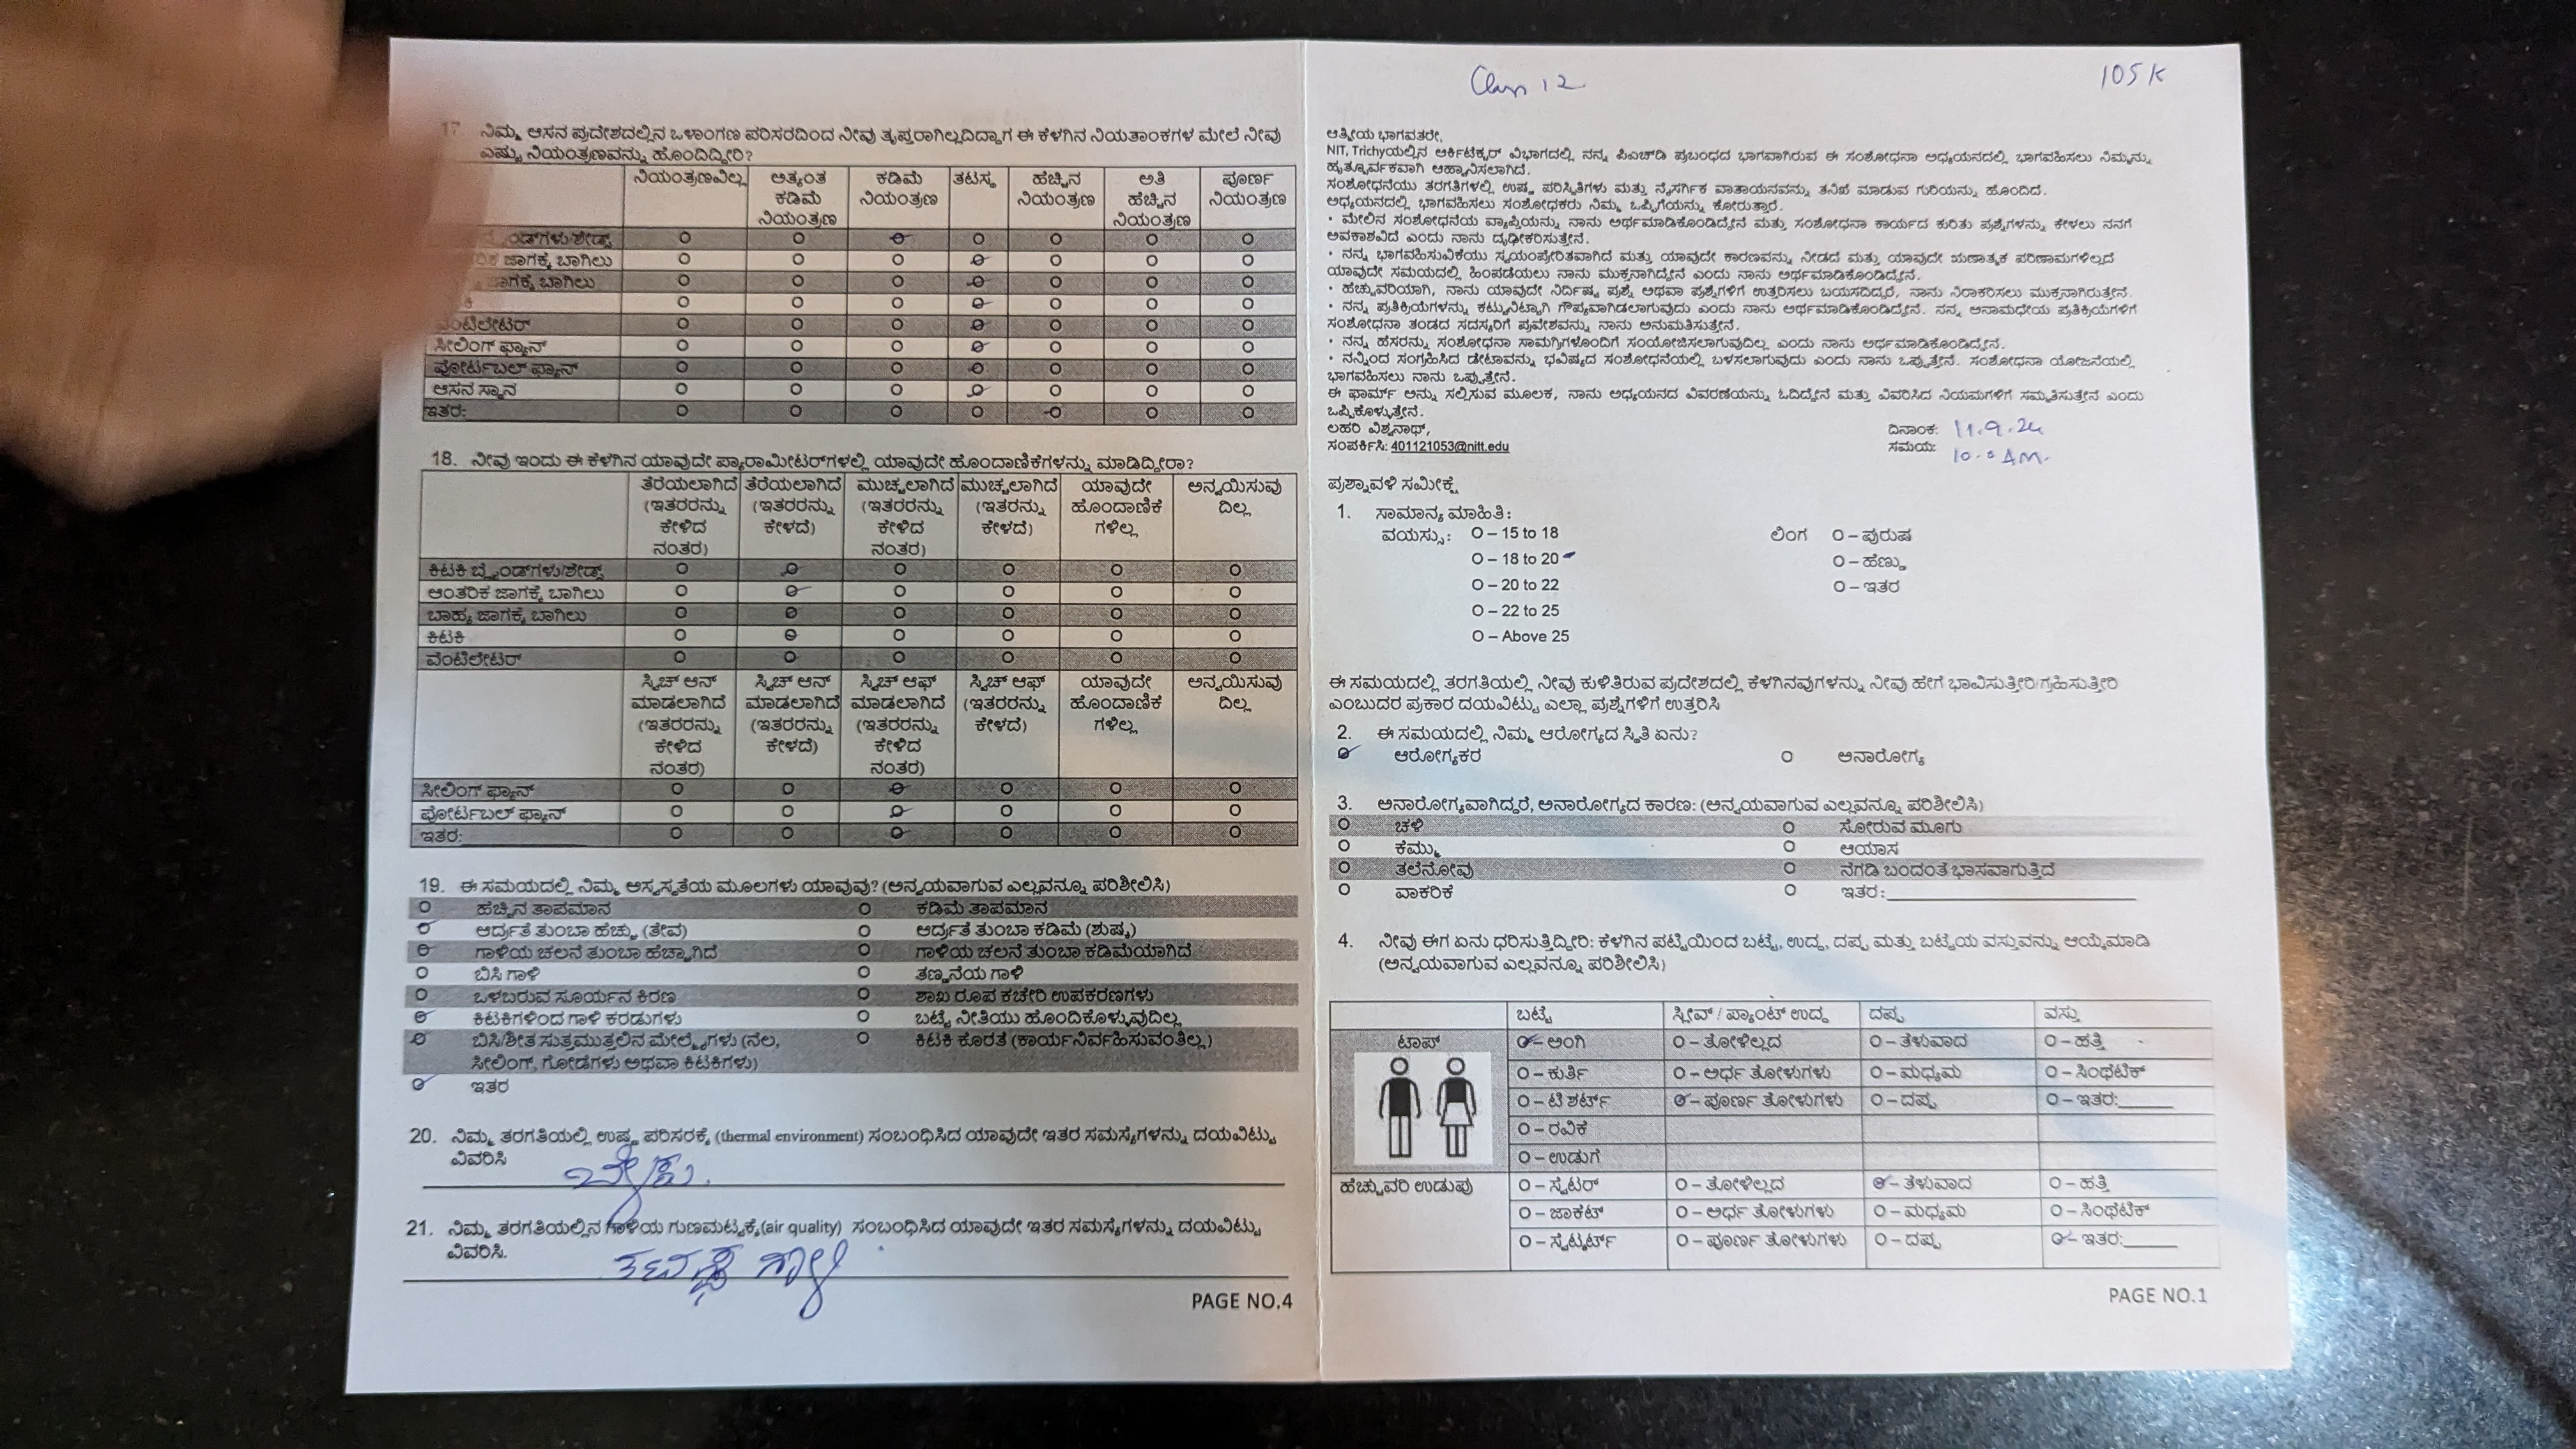 17 ನಿಮ್ಮ ಆಸನ ಪ್ರದೇಶದಲ್ಲಿನ ಒಳಾಂಗಣ ಪರಿಸರದಿಂದ ನೀವು ತೃಪ್ತರಾಗಿಲ್ಲದಿದ್ದಾಗ ಈ ಕೆಳಗಿನ ನಿಯತಾಂಕಗಳ ಮೇಲೆ ನೀವು
ಎಷ್ಟು ನಿಯಂತ್ರಣವನ್ನು ಹೊಂದಿದ್ದೀರಿ?
ನಿಯಂತ್ರಣವಿಲ್ಲ ಅತ್ಯಂತ ಕಡಿಮೆ ನಿಯಂತ್ರಣ ಕಡಿಮೆ ನಿಯಂತ್ರಣ ತಟಸ್ಥ ಹೆಚ್ಚಿನ ನಿಯಂತ್ರಣ ಅತಿ ಹೆಚ್ಚಿನ ನಿಯಂತ್ರಣ ಪೂರ್ಣ ನಿಯಂತ್ರಣ
ಜಾಗಕ್ಕೆ ಬಾಗಿಲು
ಜಾಗಕ್ಕೆ ಬಾಗಿಲು
ವೆಂಟಿಲೇಟರ್
ಸೀಲಿಂಗ್ ಫ್ಯಾನ್
ಪೋರ್ಟಬಲ್ ಫ್ಯಾನ್
ಆಸನ ಸ್ಥಾನ
ಇತರ:
18. ನೀವು ಇಂದು ಈ ಕೆಳಗಿನ ಯಾವುದೇ ಪ್ಯಾರಾಮೀಟರ್‌ಗಳಲ್ಲಿ ಯಾವುದೇ ಹೊಂದಾಣಿಕೆಗಳನ್ನು ಮಾಡಿದ್ದೀರಾ?
ತೆರೆಯಲಾಗಿದೆ (ಇತರರನ್ನು ಕೇಳಿದ ನಂತರ) ತೆರೆಯಲಾಗಿದೆ (ಇತರರನ್ನು ಕೇಳದೆ) ಮುಚ್ಚಲಾಗಿದೆ (ಇತರರನ್ನು ಕೇಳಿದ ನಂತರ) ಮುಚ್ಚಲಾಗಿದೆ (ಇತರರನ್ನು ಕೇಳದೆ) ಯಾವುದೇ ಹೊಂದಾಣಿಕೆ ಗಳಿಲ್ಲ ಅನ್ವಯಿಸುವು ದಿಲ್ಲ
ಕಿಟಕಿ ಬ್ಲೈಂಡ್‌ಗಳು/ಶೇಡ್ಸ್
ಆಂತರಿಕ ಜಾಗಕ್ಕೆ ಬಾಗಿಲು
ಬಾಹ್ಯ ಜಾಗಕ್ಕೆ ಬಾಗಿಲು
ಕಿಟಕಿ
ವೆಂಟಿಲೇಟರ್
ಸ್ವಿಚ್ ಆನ್ ಮಾಡಲಾಗಿದೆ (ಇತರರನ್ನು ಕೇಳಿದ ನಂತರ) ಸ್ವಿಚ್ ಆನ್ ಮಾಡಲಾಗಿದೆ (ಇತರರನ್ನು ಕೇಳದೆ) ಸ್ವಿಚ್ ಆಫ್ ಮಾಡಲಾಗಿದೆ (ಇತರರನ್ನು ಕೇಳಿದ ನಂತರ) ಸ್ವಿಚ್ ಆಫ್ (ಇತರರನ್ನು ಕೇಳದೆ) ಯಾವುದೇ ಹೊಂದಾಣಿಕೆ ಗಳಿಲ್ಲ ಅನ್ವಯಿಸುವು ದಿಲ್ಲ
ಸೀಲಿಂಗ್ ಫ್ಯಾನ್
ಪೋರ್ಟಬಲ್ ಫ್ಯಾನ್
ಇತರ:
19. ಈ ಸಮಯದಲ್ಲಿ ನಿಮ್ಮ ಅಸ್ವಸ್ಥತೆಯ ಮೂಲಗಳು ಯಾವುವು? (ಅನ್ವಯವಾಗುವ ಎಲ್ಲವನ್ನೂ ಪರಿಶೀಲಿಸಿ)
ಹೆಚ್ಚಿನ ತಾಪಮಾನ ಕಡಿಮೆ ತಾಪಮಾನ
ಆರ್ದ್ರತೆ ತುಂಬಾ ಹೆಚ್ಚು (ತೇವ) ಆರ್ದ್ರತೆ ತುಂಬಾ ಕಡಿಮೆ (ಶುಷ್ಕ)
ಗಾಳಿಯ ಚಲನೆ ತುಂಬಾ ಹೆಚ್ಚಾಗಿದೆ ಗಾಳಿಯ ಚಲನೆ ತುಂಬಾ ಕಡಿಮೆಯಾಗಿದೆ
ಬಿಸಿ ಗಾಳಿ ತಣ್ಣನೆಯ ಗಾಳಿ
ಒಳಬರುವ ಸೂರ್ಯನ ಕಿರಣ ಶಾಖ ರೂಪ ಕಚೇರಿ ಉಪಕರಣಗಳು
ಕಿಟಕಿಗಳಿಂದ ಗಾಳಿ ಕರಡುಗಳು ಬಟ್ಟೆ ನೀತಿಯು ಹೊಂದಿಕೊಳ್ಳುವುದಿಲ್ಲ
ಬಿಸಿ/ಶೀತ ಸುತ್ತಮುತ್ತಲಿನ ಮೇಲ್ಮೈಗಳು (ನೆಲ, ಕಿಟಕಿ ಕೊರತೆ (ಕಾರ್ಯನಿರ್ವಹಿಸುವಂತಿಲ್ಲ)
ಸೀಲಿಂಗ್, ಗೋಡೆಗಳು ಅಥವಾ ಕಿಟಕಿಗಳು)
ಇತರ
20. ನಿಮ್ಮ ತರಗತಿಯಲ್ಲಿ ಉಷ್ಣ ಪರಿಸರಕ್ಕೆ (thermal environment) ಸಂಬಂಧಿಸಿದ ಯಾವುದೇ ಇತರ ಸಮಸ್ಯೆಗಳನ್ನು ದಯವಿಟ್ಟು
ವಿವರಿಸಿ
21. ನಿಮ್ಮ ತರಗತಿಯಲ್ಲಿನ ಗಾಳಿಯ ಗುಣಮಟ್ಟಕ್ಕೆ(air quality) ಸಂಬಂಧಿಸಿದ ಯಾವುದೇ ಇತರ ಸಮಸ್ಯೆಗಳನ್ನು ದಯವಿಟ್ಟು
ವಿವರಿಸಿ.
PAGE NO.4
Class 12 105K
ಆತ್ಮೀಯ ಭಾಗವತರೇ,
NIT, Trichyಯಲ್ಲಿನ ಆರ್ಕಿಟೆಕ್ಚರ್ ವಿಭಾಗದಲ್ಲಿ ನನ್ನ ಪಿಎಚ್‌ಡಿ ಪ್ರಬಂಧದ ಭಾಗವಾಗಿರುವ ಈ ಸಂಶೋಧನಾ ಅಧ್ಯಯನದಲ್ಲಿ ಭಾಗವಹಿಸಲು ನಿಮ್ಮನ್ನು
ಹೃತ್ಪೂರ್ವಕವಾಗಿ ಆಹ್ವಾನಿಸಲಾಗಿದೆ.
ಸಂಶೋಧನೆಯು ತರಗತಿಗಳಲ್ಲಿ ಉಷ್ಣ ಪರಿಸ್ಥಿತಿಗಳು ಮತ್ತು ನೈಸರ್ಗಿಕ ವಾತಾಯನವನ್ನು ತನಿಖೆ ಮಾಡುವ ಗುರಿಯನ್ನು ಹೊಂದಿದೆ.
ಅಧ್ಯಯನದಲ್ಲಿ ಭಾಗವಹಿಸಲು ಸಂಶೋಧಕರು ನಿಮ್ಮ ಒಪ್ಪಿಗೆಯನ್ನು ಕೋರುತ್ತಾರೆ.
• ಮೇಲಿನ ಸಂಶೋಧನೆಯ ವ್ಯಾಪ್ತಿಯನ್ನು ನಾನು ಅರ್ಥಮಾಡಿಕೊಂಡಿದ್ದೇನೆ ಮತ್ತು ಸಂಶೋಧನಾ ಕಾರ್ಯದ ಕುರಿತು ಪ್ರಶ್ನೆಗಳನ್ನು ಕೇಳಲು ನನಗೆ
ಅವಕಾಶವಿದೆ ಎಂದು ನಾನು ದೃಢೀಕರಿಸುತ್ತೇನೆ.
• ನನ್ನ ಭಾಗವಹಿಸುವಿಕೆಯು ಸ್ವಯಂಪ್ರೇರಿತವಾಗಿದೆ ಮತ್ತು ಯಾವುದೇ ಕಾರಣವನ್ನು ನೀಡದೆ ಮತ್ತು ಯಾವುದೇ ಋಣಾತ್ಮಕ ಪರಿಣಾಮಗಳಿಲ್ಲದೆ
ಯಾವುದೇ ಸಮಯದಲ್ಲಿ ಹಿಂಪಡೆಯಲು ನಾನು ಮುಕ್ತನಾಗಿದ್ದೇನೆ ಎಂದು ನಾನು ಅರ್ಥಮಾಡಿಕೊಂಡಿದ್ದೇನೆ.
• ಹೆಚ್ಚುವರಿಯಾಗಿ, ನಾನು ಯಾವುದೇ ನಿರ್ದಿಷ್ಟ ಪ್ರಶ್ನೆ ಅಥವಾ ಪ್ರಶ್ನೆಗಳಿಗೆ ಉತ್ತರಿಸಲು ಬಯಸದಿದ್ದರೆ, ನಾನು ನಿರಾಕರಿಸಲು ಮುಕ್ತನಾಗಿರುತ್ತೇನೆ.
• ನನ್ನ ಪ್ರತಿಕ್ರಿಯೆಗಳನ್ನು ಕಟ್ಟುನಿಟ್ಟಾಗಿ ಗೌಪ್ಯವಾಗಿಡಲಾಗುವುದು ಎಂದು ನಾನು ಅರ್ಥಮಾಡಿಕೊಂಡಿದ್ದೇನೆ. ನನ್ನ ಅನಾಮಧೇಯ ಪ್ರತಿಕ್ರಿಯೆಗಳಿಗೆ
ಸಂಶೋಧನಾ ತಂಡದ ಸದಸ್ಯರಿಗೆ ಪ್ರವೇಶವನ್ನು ನಾನು ಅನುಮತಿಸುತ್ತೇನೆ.
• ನನ್ನ ಹೆಸರನ್ನು ಸಂಶೋಧನಾ ಸಾಮಗ್ರಿಗಳೊಂದಿಗೆ ಸಂಯೋಜಿಸಲಾಗುವುದಿಲ್ಲ ಎಂದು ನಾನು ಅರ್ಥಮಾಡಿಕೊಂಡಿದ್ದೇನೆ.
• ನನ್ನಿಂದ ಸಂಗ್ರಹಿಸಿದ ಡೇಟಾವನ್ನು ಭವಿಷ್ಯದ ಸಂಶೋಧನೆಯಲ್ಲಿ ಬಳಸಲಾಗುವುದು ಎಂದು ನಾನು ಒಪ್ಪುತ್ತೇನೆ. ಸಂಶೋಧನಾ ಯೋಜನೆಯಲ್ಲಿ
ಭಾಗವಹಿಸಲು ನಾನು ಒಪ್ಪುತ್ತೇನೆ.
ಈ ಫಾರ್ಮ್ ಅನ್ನು ಸಲ್ಲಿಸುವ ಮೂಲಕ, ನಾನು ಅಧ್ಯಯನದ ವಿವರಣೆಯನ್ನು ಓದಿದ್ದೇನೆ ಮತ್ತು ವಿವರಿಸಿದ ನಿಯಮಗಳಿಗೆ ಸಮ್ಮತಿಸುತ್ತೇನೆ ಎಂದು
ಒಪ್ಪಿಕೊಳ್ಳುತ್ತೇನೆ.
ಲಹರಿ ವಿಶ್ವನಾಥ್, ದಿನಾಂಕ: 11.9.24
ಸಂಪರ್ಕಿಸಿ: 401121053@nitt.edu ಸಮಯ: 10.0 AM.
ಪ್ರಶ್ನಾವಳಿ ಸಮೀಕ್ಷೆ
1. ಸಾಮಾನ್ಯ ಮಾಹಿತಿ:
ವಯಸ್ಸು: O – 15 to 18 ಲಿಂಗ O – ಪುರುಷ
O – 18 to 20 O – ಹೆಣ್ಣು
O – 20 to 22 O – ಇತರ
O – 22 to 25
O – Above 25
ಈ ಸಮಯದಲ್ಲಿ ತರಗತಿಯಲ್ಲಿ ನೀವು ಕುಳಿತಿರುವ ಪ್ರದೇಶದಲ್ಲಿ ಕೆಳಗಿನವುಗಳನ್ನು ನೀವು ಹೇಗೆ ಭಾವಿಸುತ್ತೀರಿ/ಗ್ರಹಿಸುತ್ತೀರಿ
ಎಂಬುದರ ಪ್ರಕಾರ ದಯವಿಟ್ಟು ಎಲ್ಲಾ ಪ್ರಶ್ನೆಗಳಿಗೆ ಉತ್ತರಿಸಿ
2. ಈ ಸಮಯದಲ್ಲಿ ನಿಮ್ಮ ಆರೋಗ್ಯದ ಸ್ಥಿತಿ ಏನು?
ಆರೋಗ್ಯಕರ O ಅನಾರೋಗ್ಯ
3. ಅನಾರೋಗ್ಯವಾಗಿದ್ದರೆ, ಅನಾರೋಗ್ಯದ ಕಾರಣ: (ಅನ್ವಯವಾಗುವ ಎಲ್ಲವನ್ನೂ ಪರಿಶೀಲಿಸಿ)
O ಚಳಿ O ಸೋರುವ ಮೂಗು
O ಕೆಮ್ಮು O ಆಯಾಸ
O ತಲೆನೋವು O ನೆಗಡಿ ಬಂದಂತೆ ಭಾಸವಾಗುತ್ತಿದೆ
O ವಾಕರಿಕೆ O ಇತರ:
4. ನೀವು ಈಗ ಏನು ಧರಿಸುತ್ತಿದ್ದೀರಿ: ಕೆಳಗಿನ ಪಟ್ಟಿಯಿಂದ ಬಟ್ಟೆ, ಉದ್ದ, ದಪ್ಪ ಮತ್ತು ಬಟ್ಟೆಯ ವಸ್ತುವನ್ನು ಆಯ್ಕೆಮಾಡಿ
(ಅನ್ವಯವಾಗುವ ಎಲ್ಲವನ್ನೂ ಪರಿಶೀಲಿಸಿ)
ಬಟ್ಟೆ ಸ್ಲೀವ್ / ಪ್ಯಾಂಟ್ ಉದ್ದ ದಪ್ಪ ವಸ್ತು
ಟಾಪ್ O – ಅಂಗಿ O – ತೋಳಿಲ್ಲದ O – ತೆಳುವಾದ O – ಹತ್ತಿ
O – ಕುರ್ತಿ O – ಅರ್ಧ ತೋಳುಗಳು O – ಮಧ್ಯಮ O – ಸಿಂಥೆಟಿಕ್
O – ಟಿ ಶರ್ಟ್ O – ಪೂರ್ಣ ತೋಳುಗಳು O – ದಪ್ಪ O – ಇತರ:
O – ರವಿಕೆ
O – ಉಡುಗೆ
ಹೆಚ್ಚುವರಿ ಉಡುಪು O – ಸ್ವೆಟರ್ O – ತೋಳಿಲ್ಲದ O – ತೆಳುವಾದ O – ಹತ್ತಿ
O – ಜಾಕೆಟ್ O – ಅರ್ಧ ತೋಳುಗಳು O – ಮಧ್ಯಮ O – ಸಿಂಥೆಟಿಕ್
O – ಸ್ವೆಟ್ಶರ್ಟ್ O – ಪೂರ್ಣ ತೋಳುಗಳು O – ದಪ್ಪ O – ಇತರ:
PAGE NO.1